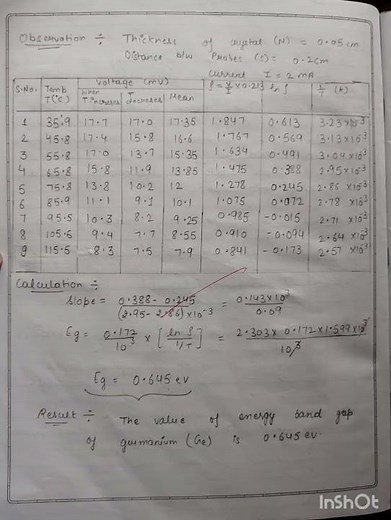 Observation ÷ Thickness of crystal (N) = 0.05 cm
Distance b/w Probes (s) = 0.2cm
current I = 2 mA
S.No. Temp T(°C) Voltage (mV) When T increases T decreases Mean ρ = V/I × 0.213 ln ρ 1/T (K)
1 35.9 17.7 17.0 17.35 1.847 0.613 3.23×10³
2 45.8 17.4 15.8 16.6 1.767 0.569 3.13×10³
3 55.8 17.0 13.7 15.35 1.634 0.491 3.04×10³
4 65.8 15.8 11.9 13.85 1.475 0.388 2.95×10³
5 75.8 13.8 10.2 12 1.278 0.245 2.86×10³
6 85.9 11.1 9.1 10.1 1.075 0.072 2.78×10³
7 95.5 10.3 8.2 9.25 0.985 -0.015 2.71×10³
8 105.5 9.4 7.7 8.55 0.910 -0.094 2.64×10³
9 115.5 8.3 7.5 7.9 0.841 -0.173 2.57×10³
Calculation ÷
Slope = 0.388 - 0.245 / (2.95-2.86)×10⁻³ = 0.143×10³ / 0.09
Eg = 0.172 / 10³ × [ln ρ / 1/T] = 2.303 × 0.172×1.599×10³ / 10³
Eg = 0.645 ev
Result ÷ The value of energy band gap
of germanium (Ge) is 0.645 ev.
InShOt